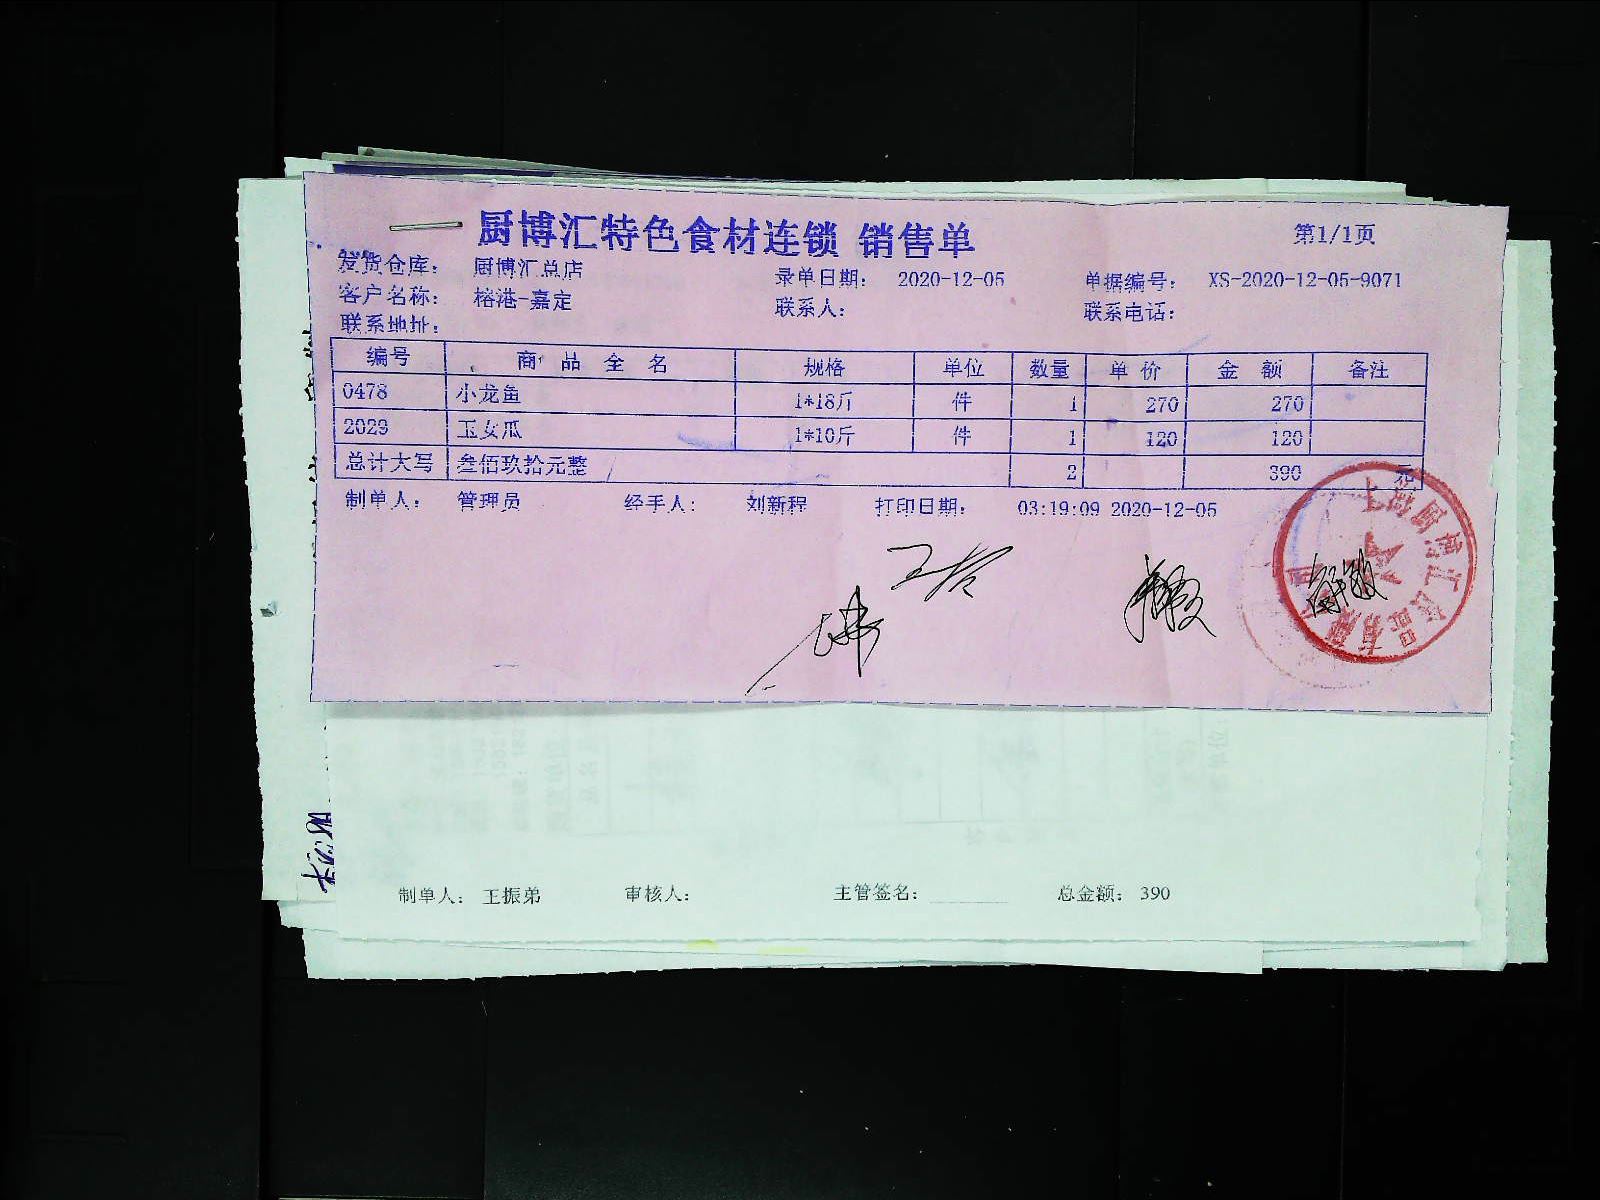 厨博汇特色食材连锁 销售单
第1/1页
发货仓库： 厨博汇总店 录单日期： 2020-12-05 单据编号： XS-2020-12-05-9071
客户名称： 榕港-嘉定 联系人： 联系电话：
联系地址：
编号 商品全名 规格 单位 数量 单价 金额 备注
0478 小龙鱼 1*18斤 件 1 270 270
2029 玉女瓜 1*10斤 件 1 120 120
总计大写 叁佰玖拾元整 2 390 元
制单人： 管理员 经手人： 刘新程 打印日期： 03:19:09 2020-12-05
制单人： 王振弟 审核人： 主管签名： 总金额： 390